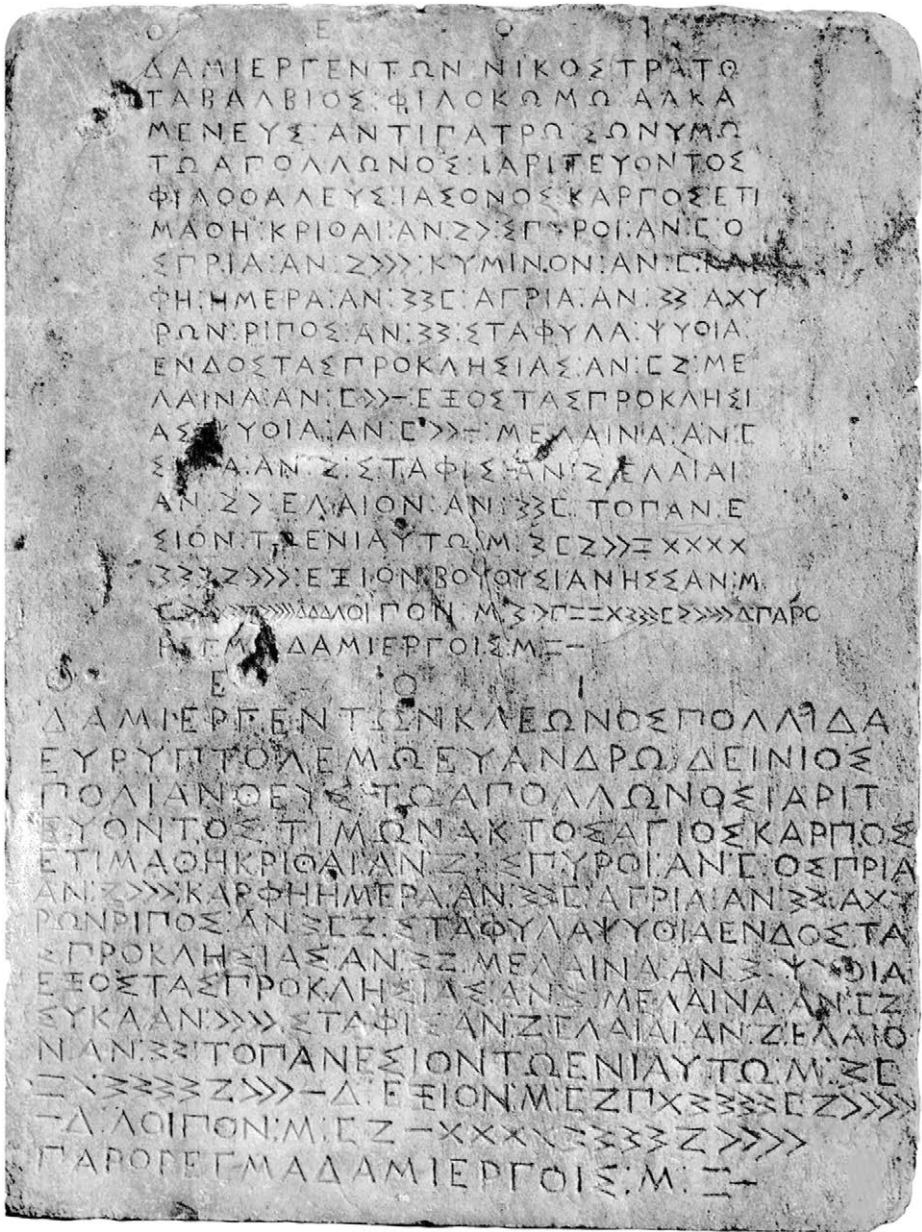 Θ Ε Ο Ι
ΔΑΜΙΕΡΓΕΝΤΩΝ ΝΙΚΟΣΤΡΑΤΩ
ΤΑΒΑΛΒΙΟΣ:ΦΙΛΟΚΩΜΩ ΑΛΚΑ
ΜΕΝΕΥΣ:ΑΝΤΙΠΑΤΡΩ:ΣΩΝΥΜΩ
ΤΩΑΠΟΛΛΩΝΟΣ:ΙΑΡΙΤΕΥΟΝΤΟΣ
ΦΙΛΟΘΑΛΕΥΣ:ΙΑΣΟΝΟΣ ΚΑΡΠΟΣΕΤΙ
ΜΑΘΗ:ΚΡΙΘΑΙ:ΑΝ:Ζ>:ΣΠΥΡΟΙ:ΑΝ:Ϲ:Ο
ΣΠΡΙΑ:ΑΝ:Ζ>>>:ΚΥΜΙΝΟΝ:ΑΝ:Ϲ:ΚΑΡ
ΦΗ:ΗΜΕΡΑ:ΑΝ:33Ϲ:ΑΓΡΙΑ:ΑΝ:33:ΑΧΥ
ΡΩΝ:ΡΙΠΟΣ:ΑΝ:33:ΣΤΑΦΥΛΑ:ΨΥΘΙΑ
ΕΝΔΟΣΤΑΣΠΡΟΚΛΗΣΙΑΣ:ΑΝ:ϹΖ:ΜΕ
ΛΑΙΝΑ:ΑΝ:Ϲ>>–:ΕΞΟΣΤΑΣΠΡΟΚΛΗΣΙ
ΑΣ:ΨΥΘΙΑ:ΑΝ:Ϲ>>–:ΜΕΛΑΙΝΑ:ΑΝ:Ϲ
ΣΥΚΑ:ΑΝ:Ζ:ΣΤΑΦΙΣ:ΑΝ:Ζ:ΕΛΑΙΑΙ
ΑΝ:Ζ>:ΕΛΑΙΟΝ:ΑΝ:33Ϲ:ΤΟΠΑΝ:Ε
ΣΙΟΝ:ΤΩΕΝΙΑΥΤΩ:Μ:3ϹΖ>>=ΧΧΧΧ
333Ζ>>>:ΕΞΙΟΝ:ΒΟΥΘΥΣΙΑΝΗΣΣΑΝ:Μ
ΛΟΙΠΟΝ:Μ:3>Γ==Χ33ϹΖ>>>>ΔΠΑΡΟ
ΡΕΓΜΑ ΔΑΜΙΕΡΓΟΙΣ:Μ=–
Θ Ε Ο Ι
ΔΑΜΙΕΡΓΕΝΤΩΝΚΛΕΩΝΟΣΠΟΛΛΙΔΑ
ΕΥΡΥΠΤΟΛΕΜΩΕΥΑΝΔΡΩ ΔΕΙΝΙΟΣ
ΠΟΛΙΑΝΘΕΥΣ:ΤΩΑΠΟΛΛΩΝΟΣΙΑΡΙΤ
ΕΥΟΝΤΟΣ:ΤΙΜΩΝΑΚΤΟΣΑΓΙΟΣΚΑΡΠΟΣ
ΕΤΙΜΑΘΗΚΡΙΘΑΙ:ΑΝ:Ζ:ΣΠΥΡΟΙ:ΑΝ:Ϲ:ΟΣΠΡΙΑ
ΑΝ:Ζ>>>:ΚΑΡΦΗΗΜΕΡΑ:ΑΝ:33Ϲ:ΑΓΡΙΑ:ΑΝ:33:ΑΧΥ
ΡΩΝΡΙΠΟΣ:ΑΝ:3ϹΖ:ΣΤΑΦΥΛΑΨΥΘΙΑΕΝΔΟΣΤΑ
ΣΠΡΟΚΛΗΣΙΑΣ:ΑΝ:3Ζ:ΜΕΛΑΙΝΑ:ΑΝ:3:ΨΥΘΙΑ
ΕΞΟΣΤΑΣΠΡΟΚΛΗΣΙΑΣ:ΑΝ:3:ΜΕΛΑΙΝΑ:ΑΝ:ϹΖ
ΣΥΚΑ:ΑΝ:>>>>:ΣΤΑΦΙΣ:ΑΝ:Ζ:ΕΛΑΙΑΙ:ΑΝ:Ζ:ΕΛΑΙΟ
Ν:ΑΝ:33:ΤΟΠΑΝΕΣΙΟΝΤΩΕΝΙΑΥΤΩ:Μ:3Ϲ
=Χ3333Ζ>>>–Δ:ΕΞΙΟΝ:Μ:ϹΖΠΧ3333ϹΖ>>>>
–Δ:ΛΟΙΠΟΝ:Μ:ϹΖ–ΧΧΧΧ3333Ζ>>>>
ΠΑΡΟΡΕΓΜΑΔΑΜΙΕΡΓΟΙΣ:Μ:=–